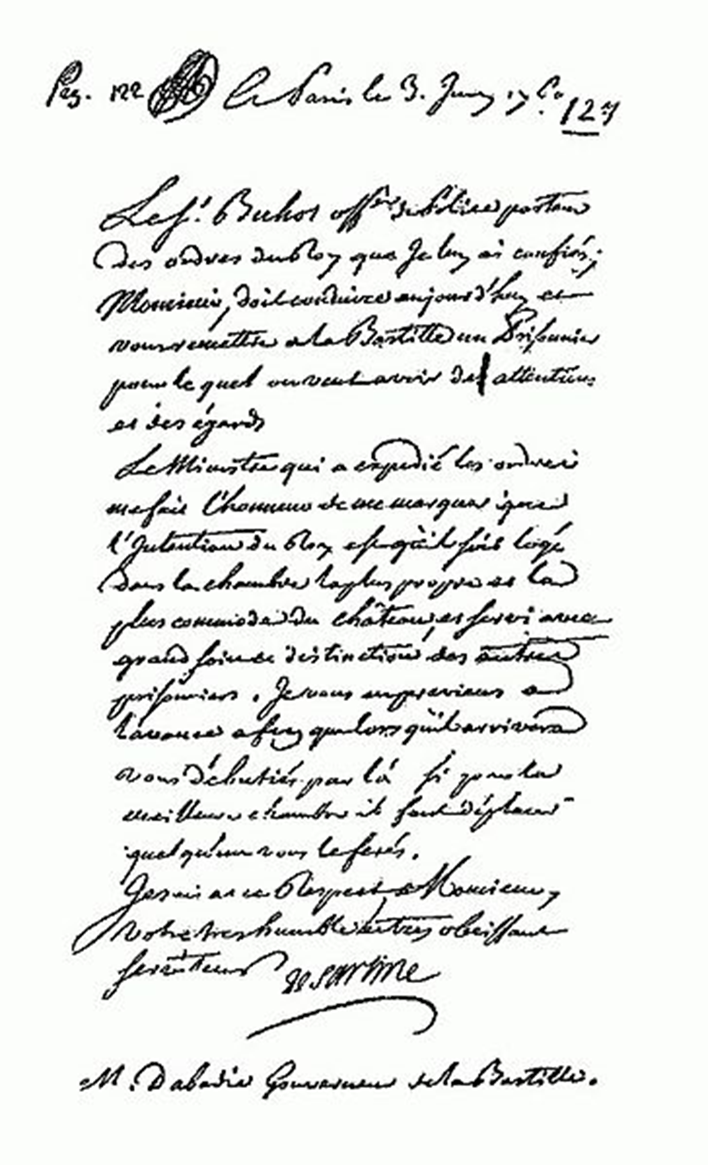 Pag. 122 A Paris le 3. Janv. 17 127
Le Sr. Buhot offer. de Police porteur
des ordres du Roy que Je luy ai confiés,
Monsieur, doit conduire aujourd'huy et
vous remettre a la Bastille un Prisonnier
pour le quel on veut avoir des attentions
et des égards
Le Ministre qui a expedié les ordres
me fait l'honneur de me marquer que
l'Intention du Roy est qu'il soit logé
dans la chambre la plus propre et la
plus commode du château, et servi avec
grand soin et distinction des autres
prisonniers. Je vous en previens a
l'avance afin que lors qu'il arrivera
vous débutiés par là si pour la
meilleure chambre il faut déplacer
quelqu'un vous le ferés.
Je suis avec Respect Monsieur,
Votre tres humble et tres obeissant
serviteur De Sartine
M. Dabadie Gouverneur de la Bastille.